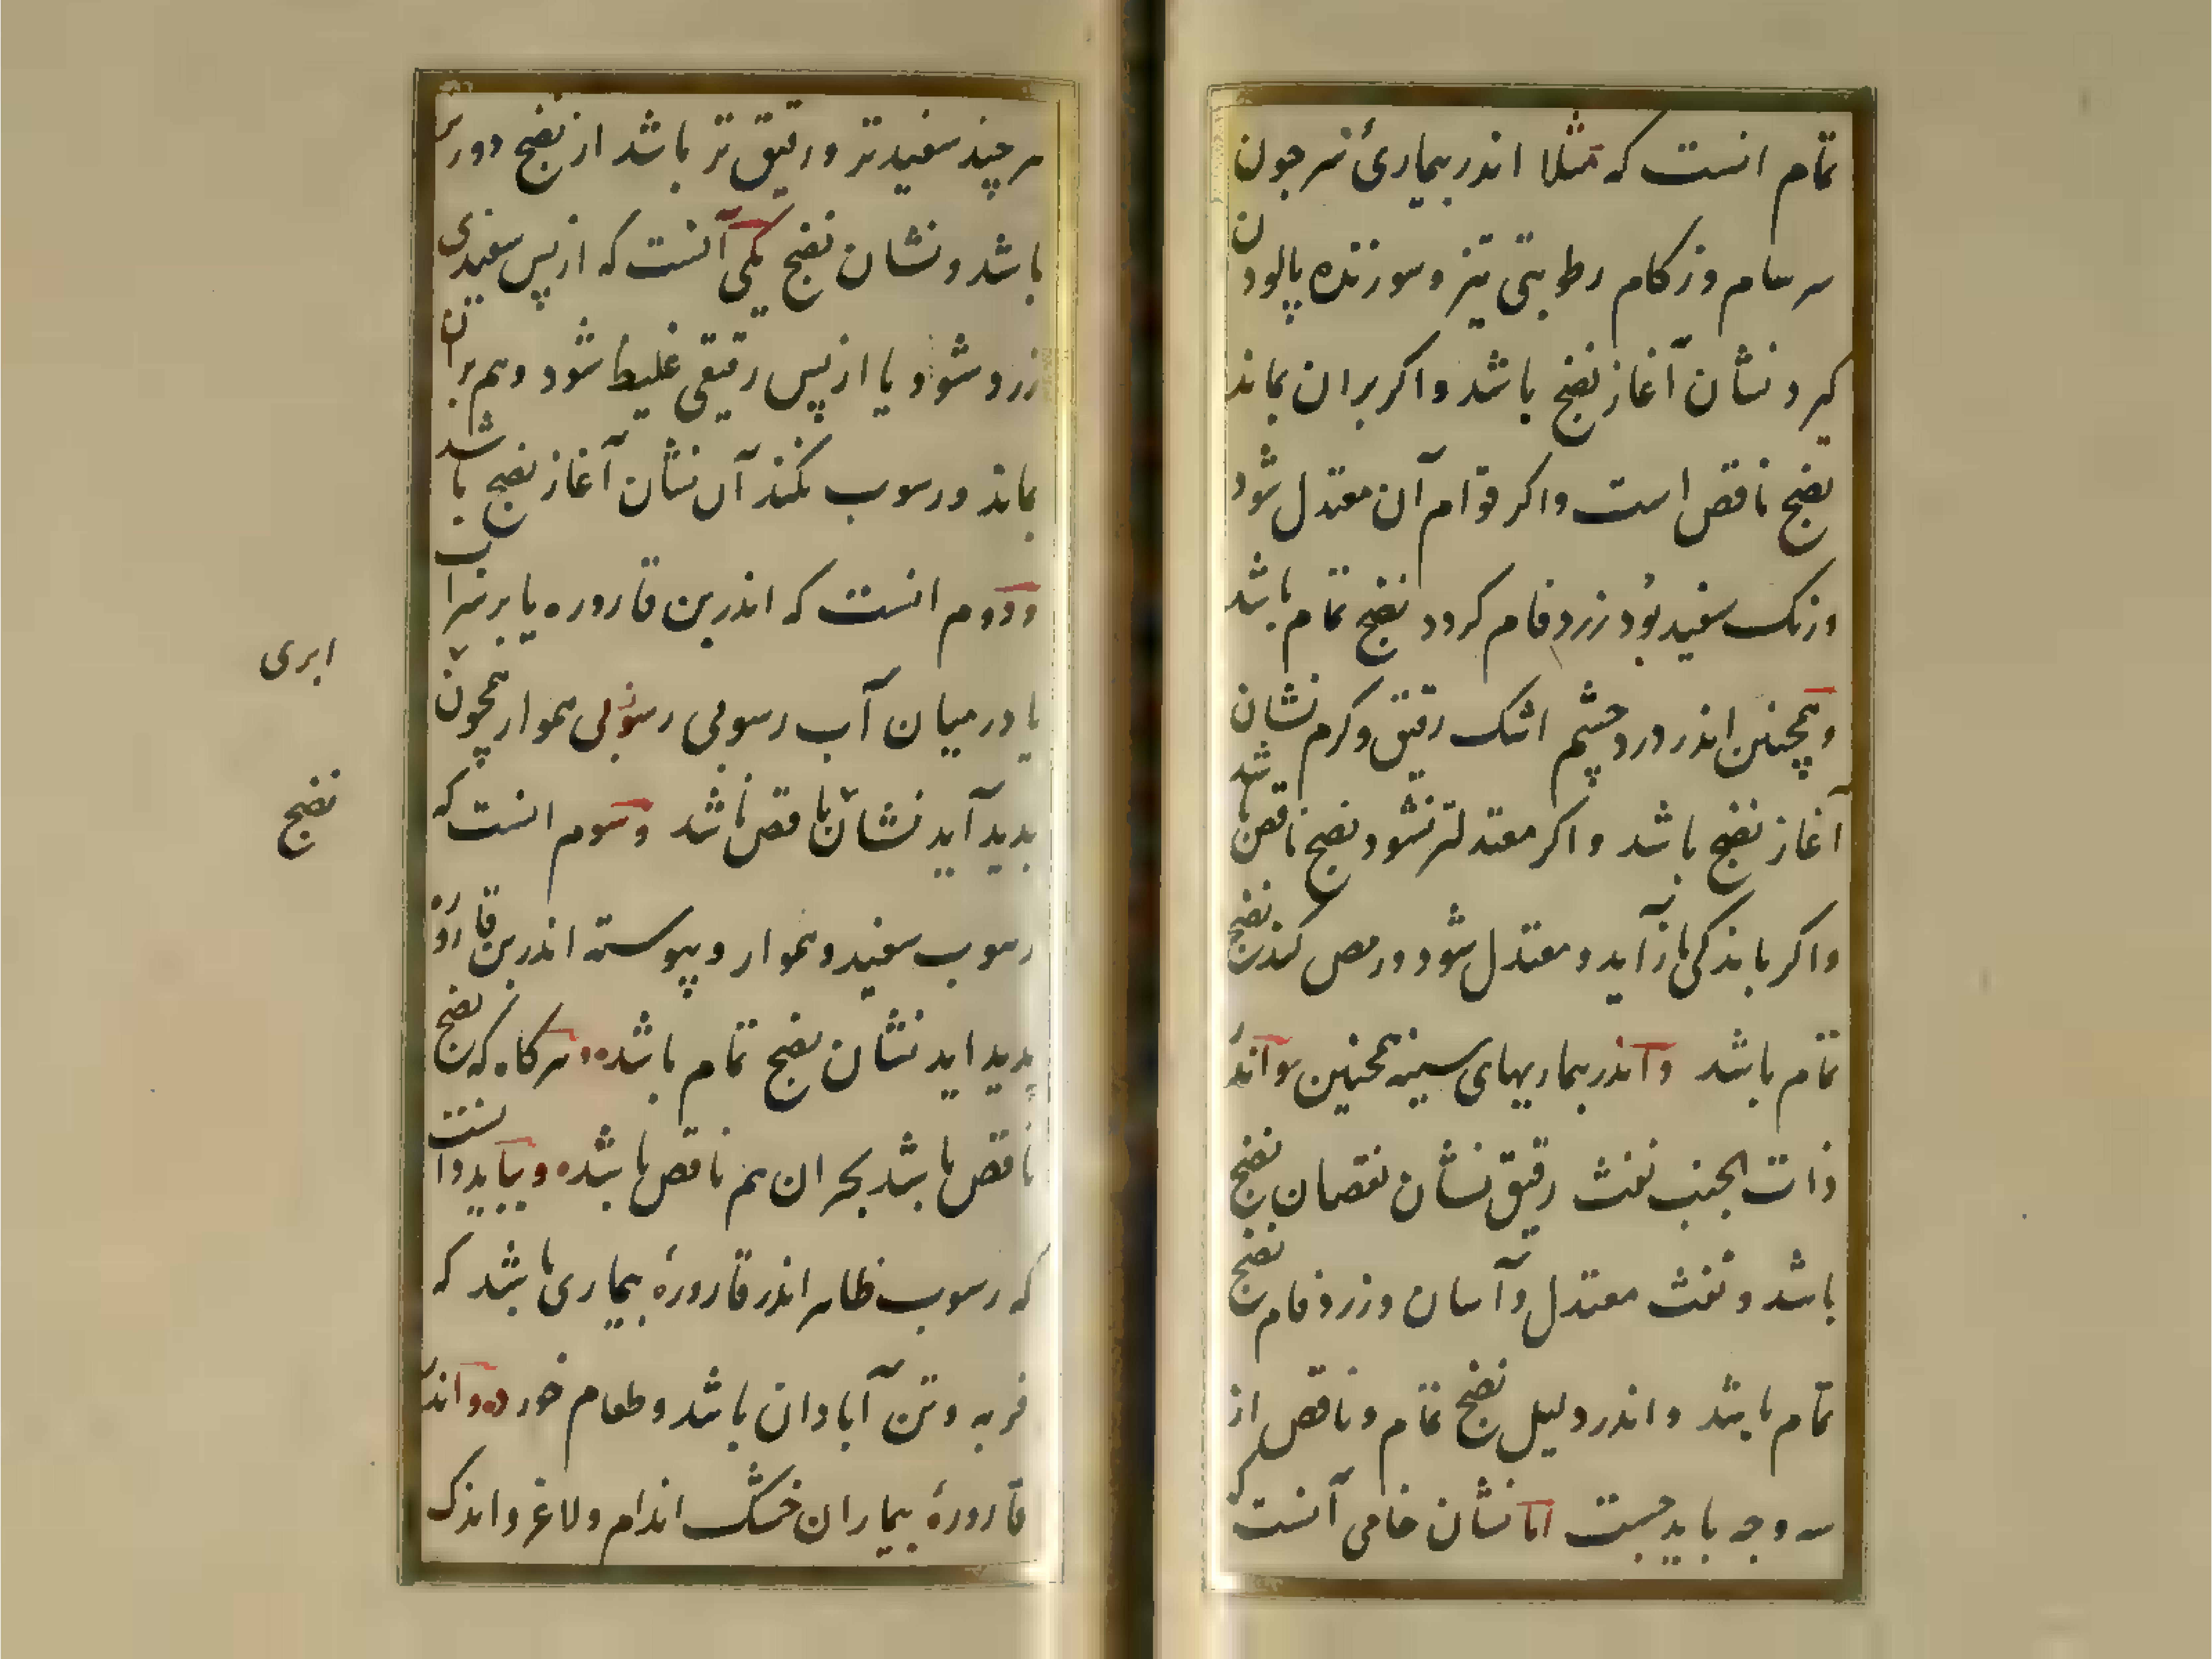 تمام انست که مثلا اندر بیماری سر چون
سرسام و زکام رطوبتی تیز و سوزنده پالودن
کیرد نشان آغاز نضج باشد و اکر بران بماند
نضج ناقص است و اکر قوام آن معتدل شود
ورنک سفید بُود زرد فام کردد نضج تمام باشد
وهمچنین اندر درد چشم اشک رقیق و کرم نشان
آغاز نضج باشد و اکر معتدلتر شود نضج ناقص باشد
واکر باندکی باز آید و معتدل شود و رمص کند نضج
تمام باشد و اندر بیماریهای سینه همچنین و اندر
ذات الجنب نفث رقیق نشان نقصان نضج
باشد و نفث معتدل و آسان و زرد فام نضج
تمام باشد و اندر دلیل نضج تمام و ناقص از
سه وجه باید جست اما نشان خامی آنست که
هر چند سفیدتر و رقیق تر باشد از نضج دورتر
باشد و نشان نضج یکی آنست که از پس سفیدی
زرد شود یا از پس رقیقی غلیظ شود و هم بران
بماند و رسوب نکند آن نشان آغاز نضج باشد
و دوم انست که اندر بن قاروره یا بر سر آب
یا در میان آب رسوبی رسوبی هموار همچون
ابری
پدید آید نشان ناقص باشد و سوم انست که
نضج
رسوب سفید و هموار و پیوسته اندر بن قاروره
پدید اید نشان نضج تمام باشد و هرکاه که نضج
ناقص باشد بحران هم ناقص باشد و بباید دانست
که رسوب ظاهر اندر قارورهٔ بیماری باشد که
فربه و تن آبادان باشد و طعام خورده و اندر
قارورهٔ بیماران خشک اندام و لاغر و اندک